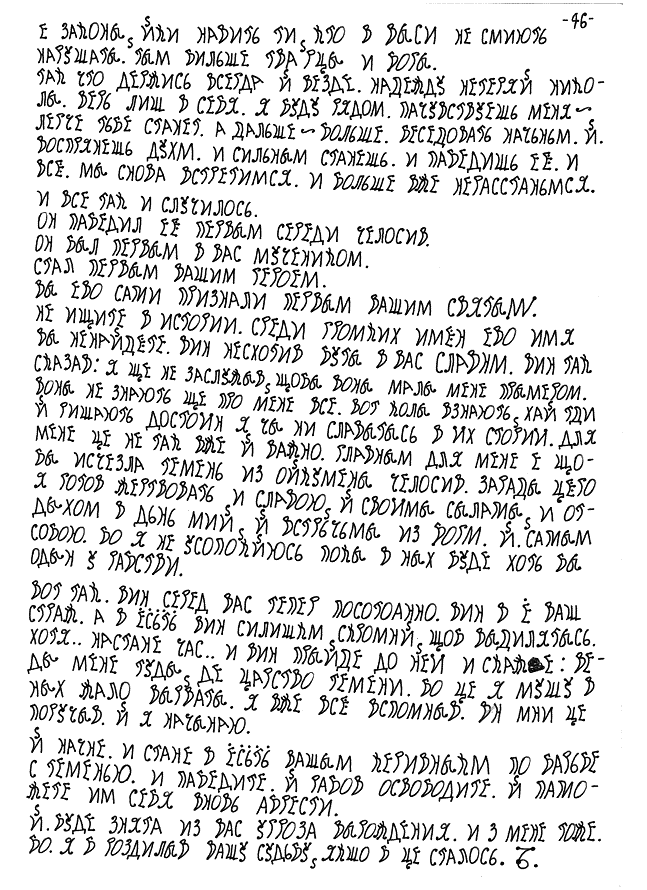 -46-
Е ЗАКОНЫ, ЯКИ КАЖИТЬ ТИ, КТО В ВЫСИ НЕ СМИЮТЬ
НАРУШАТЬ. ТЫМ БИЛЬШЕ ТВАРЦЫ И БОГЫ.
ТАК ЧТО ДЕРЖИСЬ ВСЕГДА Й ВЕЗДЕ. НАДЕЖДУ НЕТЕРЯЙ НИКО-
ЛЫ. ВЕРЬ ЛИШ В СЕБЯ. Я БУДУ РЯДОМ. ПАЧУВСТВУЕШЬ МЕНЯ~
ЛЕГЧЕ ТЬБЕ СТАНЕТ. А ДАЛЬШЕ~БОЛЬШЕ. БЕСЕДОВАТЬ НАЧЬНЫМ. Й.
ВОСПРЯНЕШЬ ДУХМ. И СИЛЬНЫМ СТАНЕШЬ. И ПАБЕДИШЬ ЕЁ. И
ВСЁ. МЫ СНОВА ВСТРЕТИМСЯ. И БОЛЬШЕ ВЖЕ НЕРАССТАНЬМСЯ.
И ВСЕ ТАК И СЛУЧИЛОСЬ.
ОН ПАБЕДИЛ ЕЁ ПЕРВЫМ СЕРЕДИ ЧЕЛОСИВ.
ОН БЫЛ ПЕРВЫМ В ВАС МУЧЕНИКОМ.
СТАЛ ПЕРВЫМ ВАШИМ ГЕРОЕМ.
ВЫ ЕВО САМИ ПРИЗНАЛИ ПЕРВЫМ ВАШИМ СВЯТЫМ.
НЕ ИЩИТЕ В ИСТОРИИ. СРЕДИ ГРОМКИХ ИМЁН ЕВО ИМЯ
ВЫ НЕНАЙДЁТЕ. ВИН НЕСХОТИВ БУТЫ В ВАС СЛАВНМ. ВИН ТАК
СКАЗАВ: Я ЩЕ НЕ ЗАСЛУЖЫВ, ЩОБЫ ВОНЫ МАЛЫ МЕНЕ ПРЫМЕРОМ.
ВОНЫ НЕ ЗНАЮТЬ ЩЕ ПРО МЕНЕ ВСЁ. ВОТ КОЛЫ ВЗНАЮТЬ, ХАЙ ТДИ
Й РИШАЮТЬ ДОСТОИН Я ЧЫ НИ СЛАВЫТЫСЬ В ИХ СТОРИИ. ДЛЯ
МЕНЕ ЦЕ НЕ ТАК ВЖЕ Й ВАЖНО. ГЛАВНЫМ ДЛЯ МЕНЕ Е ЩО-
БЫ ИСЧЕЗЛА ТЕМЕНЬ ИЗ ОЙКУМЕНЫ ЧЕЛОСИВ. ЗАРАДЫ ЦЁГО
Я ГОТОВ ЖЕРТВОВАТЬ, И СЛАВОЮ, Й СВОИМЫ СЫЛАМЫ, И ОТ-
ДЫХОМ В ДЬНЬ МИЙ, Й ВСТРЕЧЬМЫ ИЗ БОГМ. Й. САМЫМ
СОБОЮ. БО Я НЕ УСОПОКИЮСЬ ПОКЫ В НЫХ БУДЕ ХОТЬ БЫ
ОДЫН У РАБСТВИ.
ВОТ ТАК. ВИН СЕРЕД ВАС ТЕПЕР ПОСОТОАННО. ВИН В Ё ВАШ
СТРАЖ. А В ЁСЬТЬ ВИН СИЛИШКМ, СКРОМНИЙ, ЩОБ ВЫДИЛЯТЫСЬ.
ХОТЯ.. НАСТАНЕ ЧАС.. И ВИН ПРЫЙДЕ ДО НЕЙ И СКАЖЕ: ВЕ-
ДЫ МЕНЕ ТУДЫ, ДЕ ЦАРСТВО ТЕМЕНИ. БО ЦЕ Я МУШУ В
НЫХ ЖАЛО ВЫРВАТЫ. Я ВЖЕ ВСЁ ВСПОМНЫВ. ВН МНИ ЦЕ
ПОРУЧЫВ. Й Я НАЧЫНАЮ.
Й НАЧНЕ. И СТАНЕ В ЁСЬТЬ ВАШЫМ КЕРИВНЫКМ ПО БАРЬБЕ
С ТЕМЕНЬЮ. И ПАБЕДИТЕ. Й РАБОВ ОСВОБОДИТЕ. Й ПАМО-
ЖЕТЕ ИМ СЕБЯ ВНОВЬ АБРЕСТИ.
Й. БУДЕ ЗНЯТА ИЗ ВАС УГРОЗА ВЫРОЖДЕНИЯ. И З МЕНЕ ТОЖЕ.
БО. Я В РОЗДИЛЫВ ВАШУ СУДЬБУ, ЯКШО В ЦЕ СТАЛОСЬ. Б.